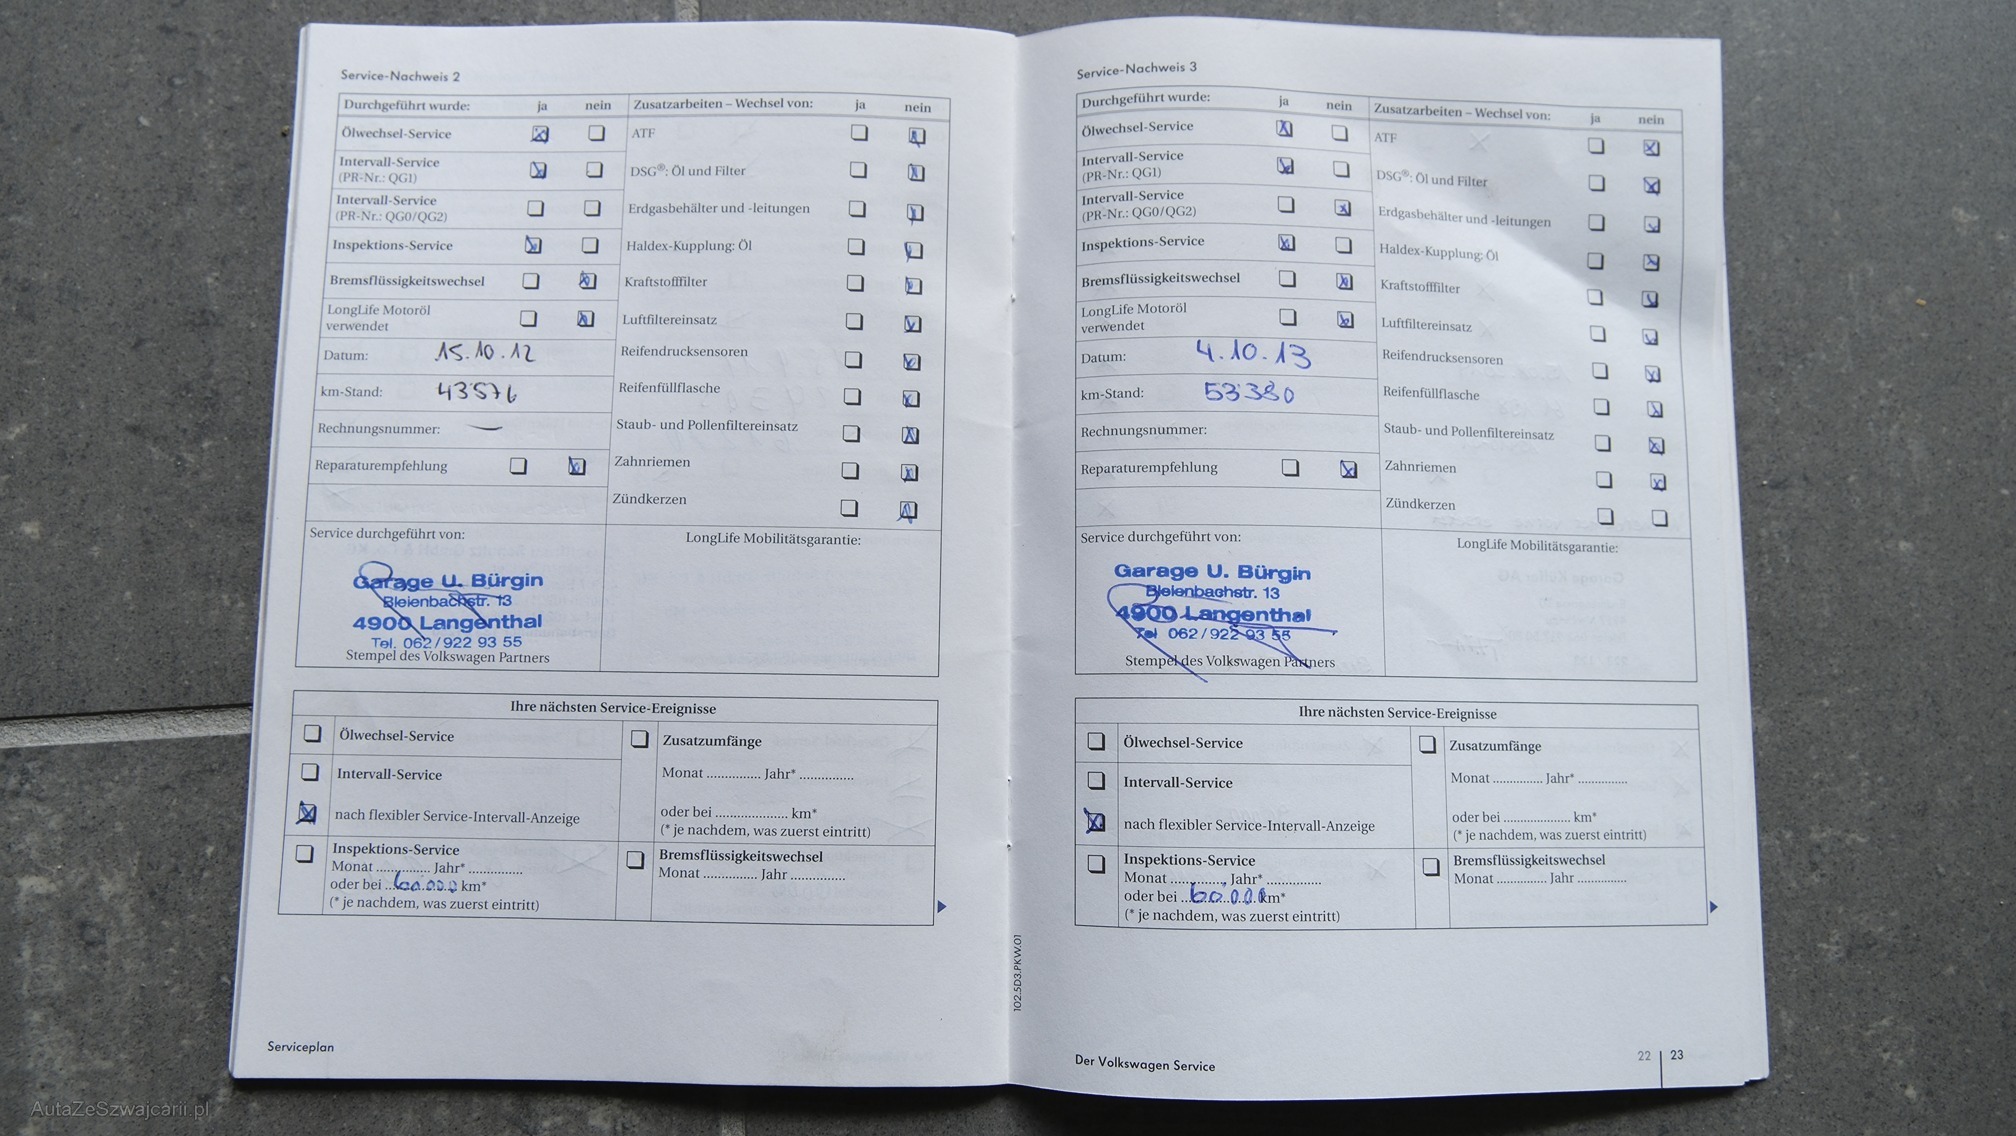 Service-Nachweis 2
Durchgeführt wurde: ja nein
Ölwechsel-Service
Intervall-Service
(PR-Nr.: QG1)
Intervall-Service
(PR-Nr.: QG0/QG2)
Inspektions-Service
Bremsflüssigkeitswechsel
LongLife Motoröl
verwendet
Datum: 15.10.12
km-Stand: 43576
Rechnungsnummer: —
Reparaturempfehlung
Zusatzarbeiten – Wechsel von: ja nein
ATF
DSG®: Öl und Filter
Erdgasbehälter und -leitungen
Haldex-Kupplung: Öl
Kraftstofffilter
Luftfiltereinsatz
Reifendrucksensoren
Reifenfüllflasche
Staub- und Pollenfiltereinsatz
Zahnriemen
Zündkerzen
Service durchgeführt von:
Garage U. Bürgin
Bleienbachstr. 13
4900 Langenthal
Tel. 062/922 93 55
Stempel des Volkswagen Partners
LongLife Mobilitätsgarantie:
Ihre nächsten Service-Ereignisse
Ölwechsel-Service
Intervall-Service
nach flexibler Service-Intervall-Anzeige
Inspektions-Service
Monat ............... Jahr* ...............
oder bei ...60.000... km*
(* je nachdem, was zuerst eintritt)
Zusatzumfänge
Monat ............... Jahr* ...............
oder bei .................... km*
(* je nachdem, was zuerst eintritt)
Bremsflüssigkeitswechsel
Monat ............... Jahr ...............
Serviceplan
Service-Nachweis 3
Durchgeführt wurde: ja nein
Ölwechsel-Service
Intervall-Service
(PR-Nr.: QG1)
Intervall-Service
(PR-Nr.: QG0/QG2)
Inspektions-Service
Bremsflüssigkeitswechsel
LongLife Motoröl
verwendet
Datum: 4.10.13
km-Stand: 53380
Rechnungsnummer:
Reparaturempfehlung
Zusatzarbeiten – Wechsel von: ja nein
ATF
DSG®: Öl und Filter
Erdgasbehälter und -leitungen
Haldex-Kupplung: Öl
Kraftstofffilter
Luftfiltereinsatz
Reifendrucksensoren
Reifenfüllflasche
Staub- und Pollenfiltereinsatz
Zahnriemen
Zündkerzen
Service durchgeführt von:
Garage U. Bürgin
Bleienbachstr. 13
4900 Langenthal
Tel 062/922 93 55
Stempel des Volkswagen Partners
LongLife Mobilitätsgarantie:
Ihre nächsten Service-Ereignisse
Ölwechsel-Service
Intervall-Service
nach flexibler Service-Intervall-Anzeige
Inspektions-Service
Monat ............... Jahr* ...............
oder bei ...60.000 km*
(* je nachdem, was zuerst eintritt)
Zusatzumfänge
Monat ............... Jahr* ...............
oder bei .................... km*
(* je nachdem, was zuerst eintritt)
Bremsflüssigkeitswechsel
Monat ............... Jahr ...............
102.5D3.PKW.01
Der Volkswagen Service
22 | 23
AutaZeSzwajcarii.pl